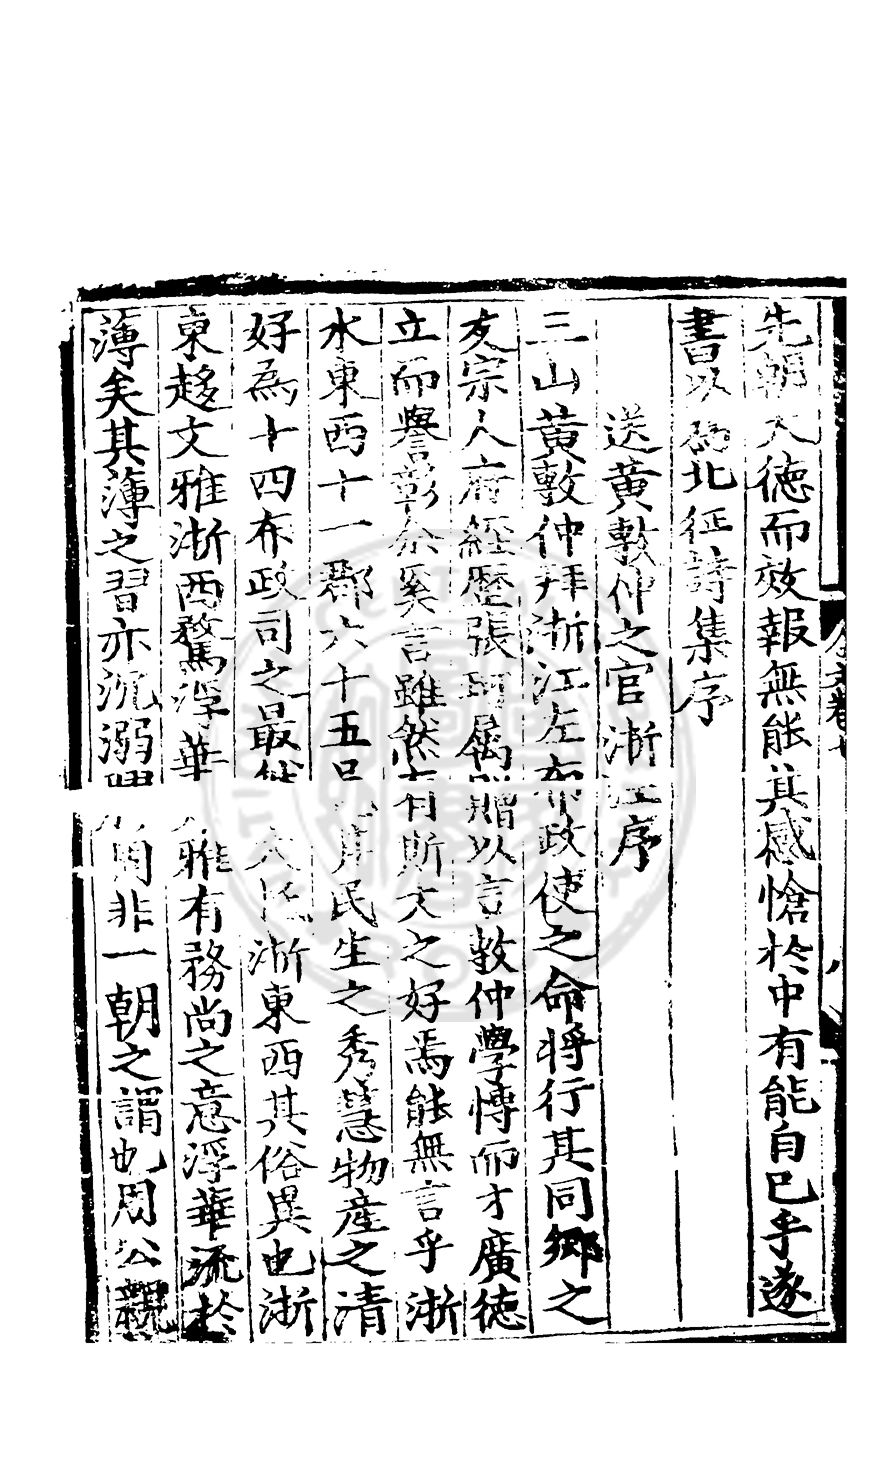 先朝大德而效報無能其感愴於中有能自已乎遂
書以為北征詩集序
送黃敷仲之官浙江序
三山黃敷仲拜浙江左布政使之命將行其同鄉之
友宗人府經歷張 屬 贈以言敷仲學博而才廣德
立而譽彰余奚言雖然有斯文之好焉能無言乎浙
水東西十一郡六十五 民生之秀慧物產之清
好為十四布政司之最然 浙東西其俗異也浙
東趍文雅浙西騖浮華 雅有務尚之意浮華流於
薄矣其薄之習亦沉溺 非一朝之謂也周公親